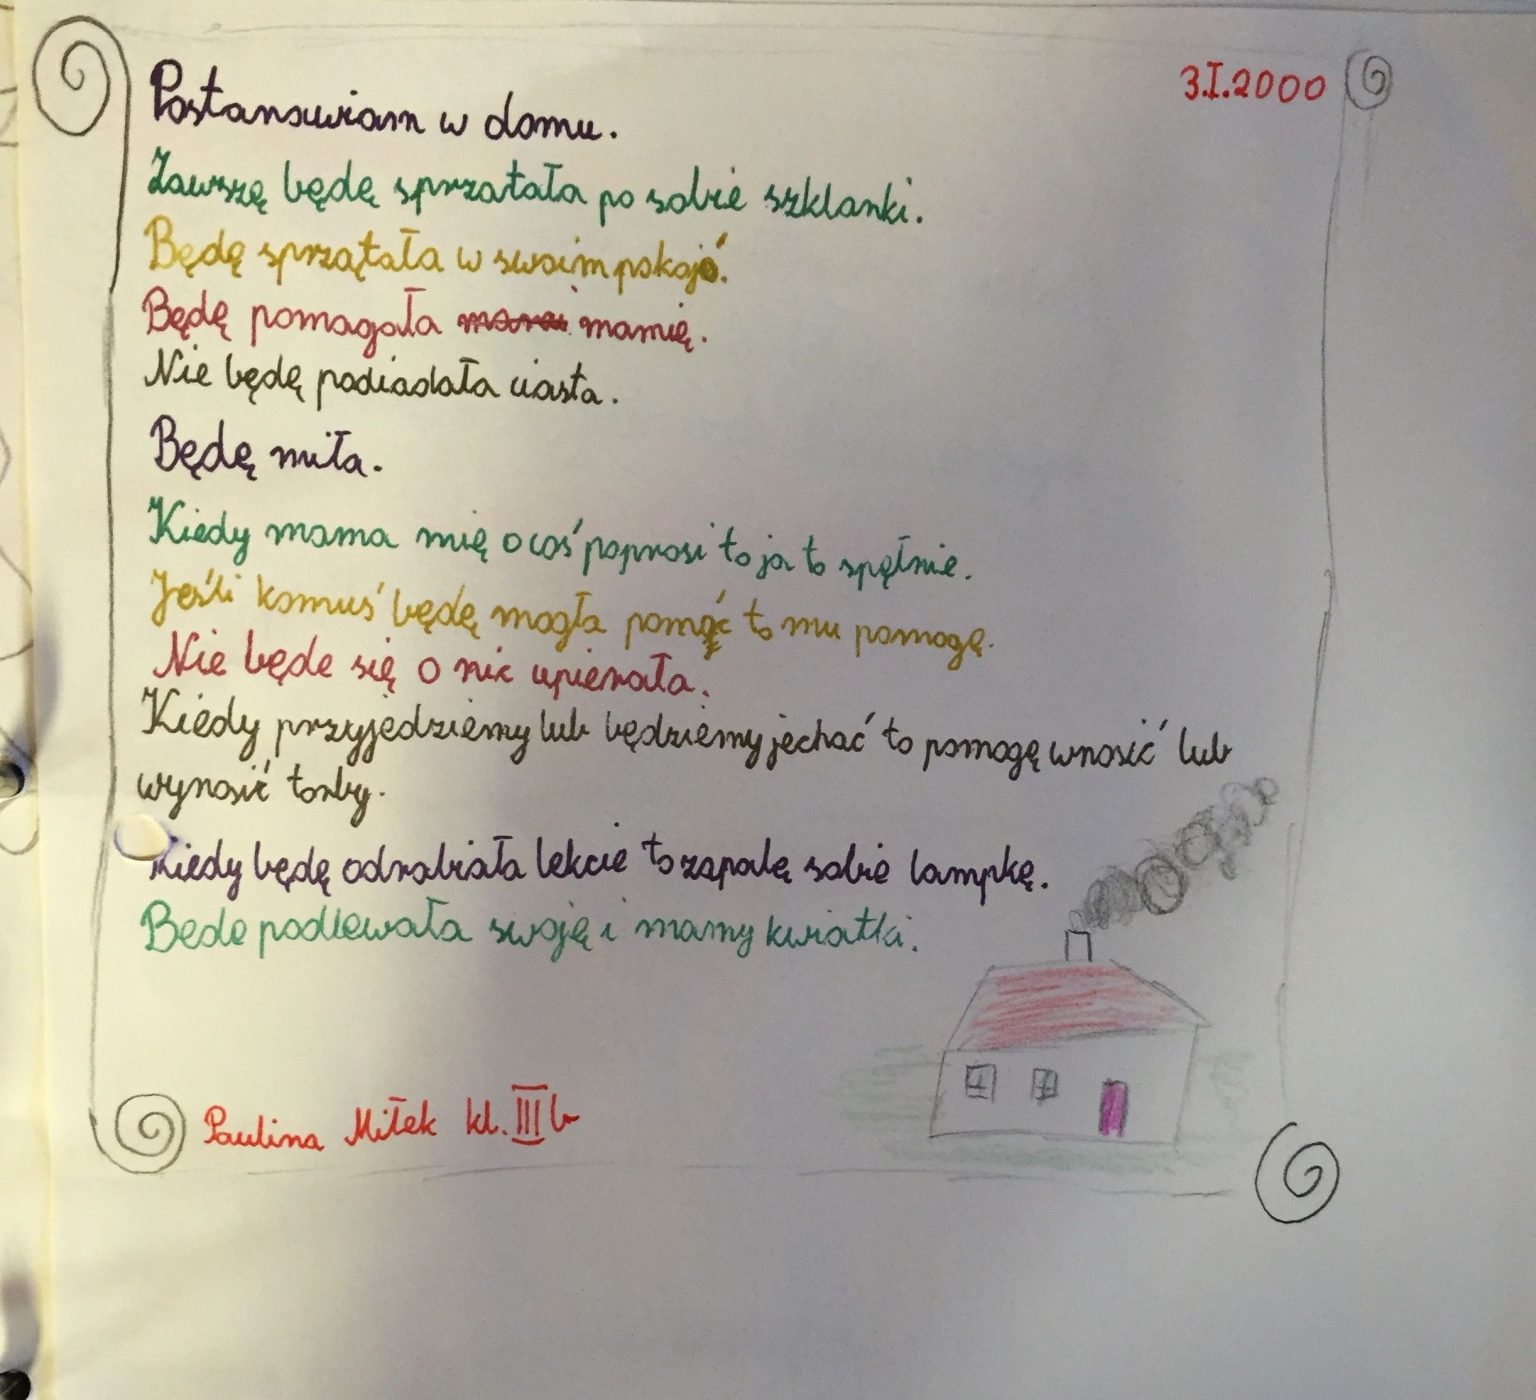 3.I.2000
Postanawiam w domu.
Zawszę będę sprzatała po sobie szklanki.
Będę sprzątała w swoim pokojó.
Będę pomagała mamię.
Nie będę podiadała ciasta.
Będę miła.
Kiedy mama mię o coś poprosi to ja to spęłnie.
Jeśli komuś będę mogła pomąc to mu pomogę.
Nie będe się o nic upierała.
Kiedy przyjedziemy lub będziemy jechać to pomogę wnosić lub
wynosić torby.
Kiedy będę odrabiała lekcie to zapalę sobie lampkę.
Bede podlewała swoję i mamy kwiatki.
Paulina Miłek kl. III b